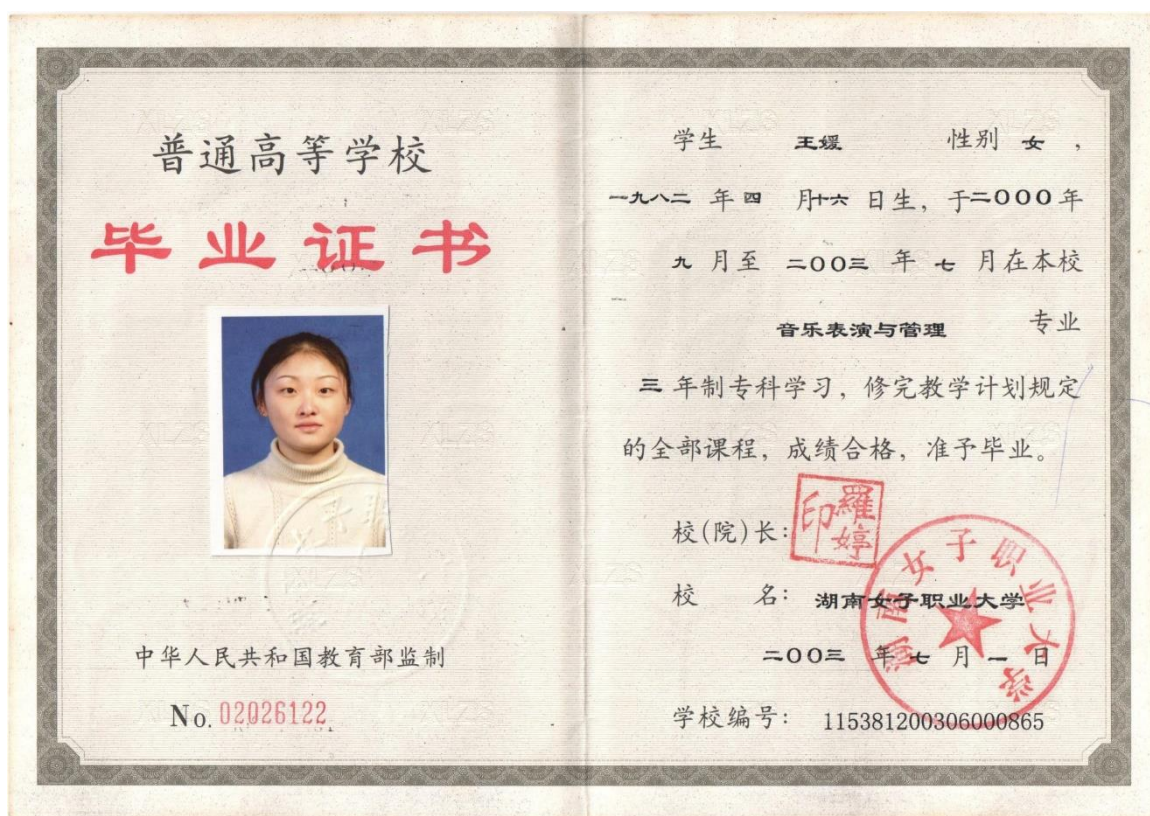 普通高等学校
毕业证书
中华人民共和国教育部监制
No. 02026122
学生 王媛 性别 女，
一九八二 年 四 月十六 日生，于二000年
九 月至 二00三 年 七 月在本校
音乐表演与管理 专业
三 年制专科学习，修完教学计划规定
的全部课程，成绩合格，准予毕业。
校(院)长：
羅婷印
校 名：湖南女子职业大学
湖南女子职业大学
二00三 年 七 月 一 日
学校编号： 115381200306000865